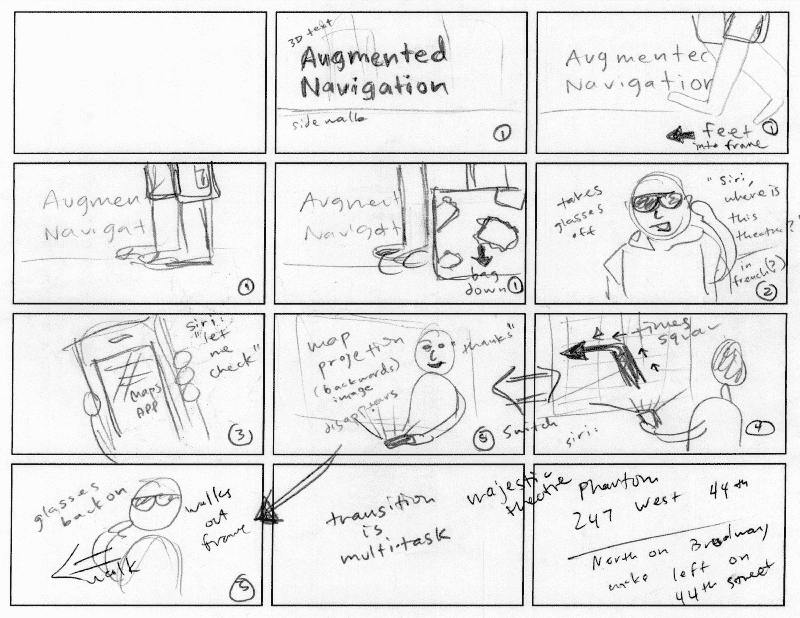 3D text
Augmented
Navigation
sidewalk
1
Augmentec
Navigation
feet
into frame
1
Augmen
Navigat
1
Augment
Navigatt
bag
down
1
takes
glasses
off
"Siri,
where is
this
theatre?"
in
french(?)
2
Siri:
"let
me
check"
MAPS
APP
3
map
projection
(backwards)
image
disappears
"thanks"
5
switch
times
square
siri:
4
glasses
back on
walks
out
frame
walk
5
transition
is
multi-task
majestic
theatre
phantom
247 west 44th
North on Broadway
make left on
44th street